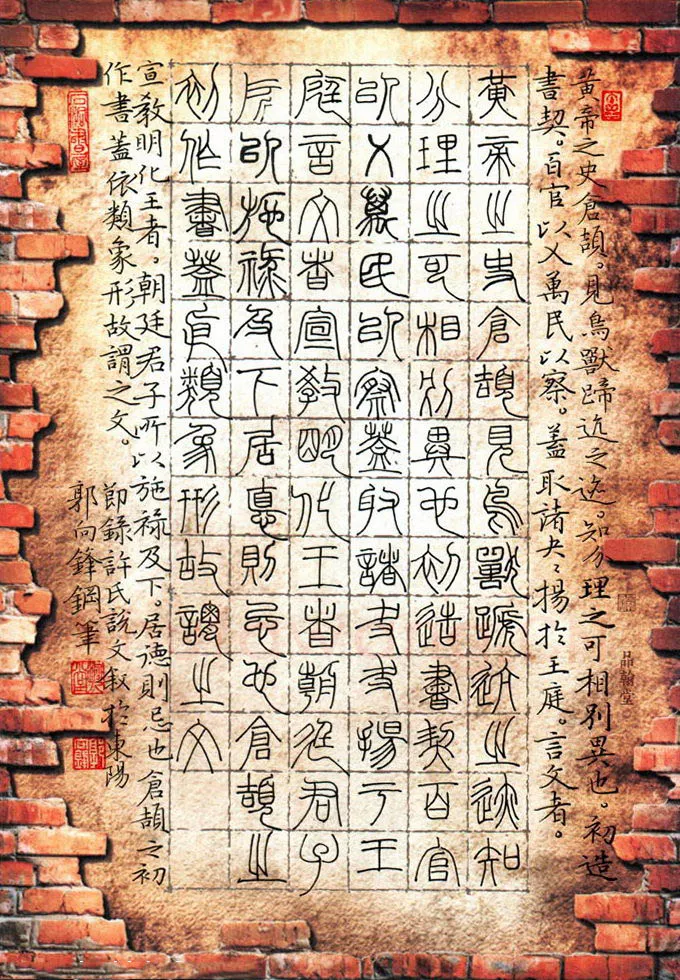 黃帝之史倉頡。見鳥獸蹄迒之迹。知分理之可相別異也。初造
書契。百官以乂萬民以察。蓋取諸夬々揚於王庭。言文者。
黃帝之史倉頡見鳥獸蹏迒之迹知
分理之可相別異也初造書契百官
以乂萬民以察蓋取諸夬夬揚于王
庭言文者宣教明化王者朝廷君子
所以施祿及下居悳則忌也倉頡之
初作書蓋依類象形故謂之文
宣教明化王者。朝廷君子所以施祿及下。居德則忌也倉頡之初
作書蓋依類象形故謂之文。
節錄許氏說文叙於東陽
郭向鋒鋼筆
品翰堂